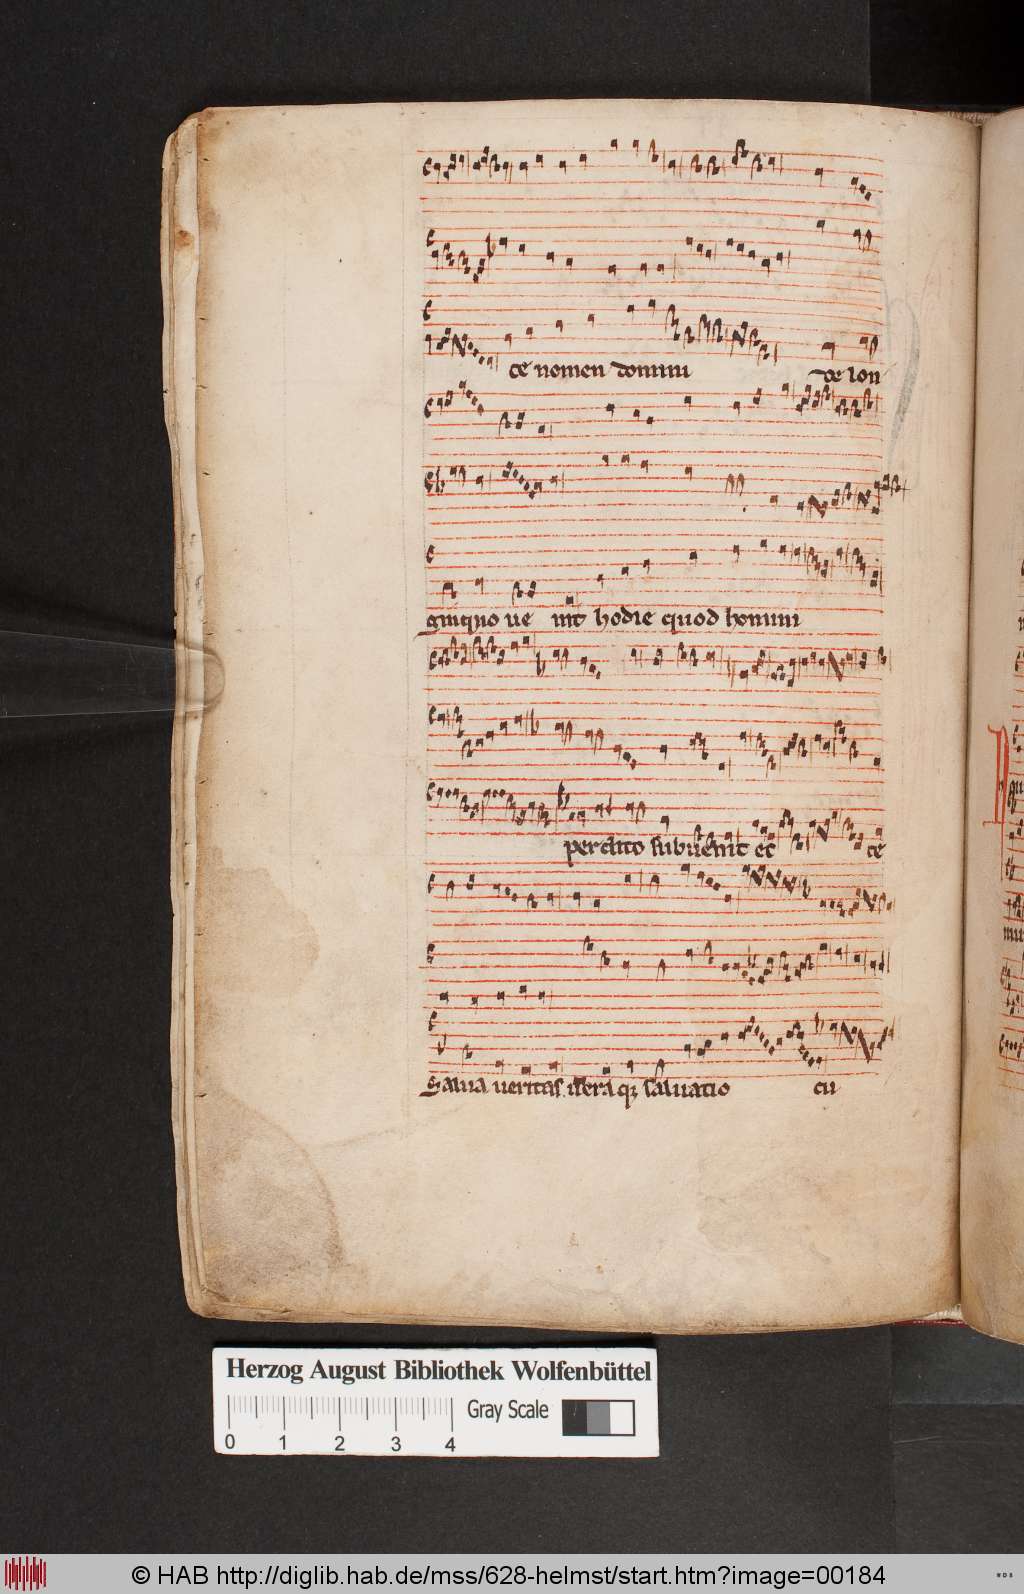 ce nomen domini de lon
ginquo ve nit hodie quod homini
perdito subvenit et ce
Salva veritas
salvatio cu
Herzog August Bibliothek Wolfenbüttel
Gray Scale
0 1 2 3 4
© HAB http://diglib.hab.de/mss/628-helmst/start.htm?image=00184